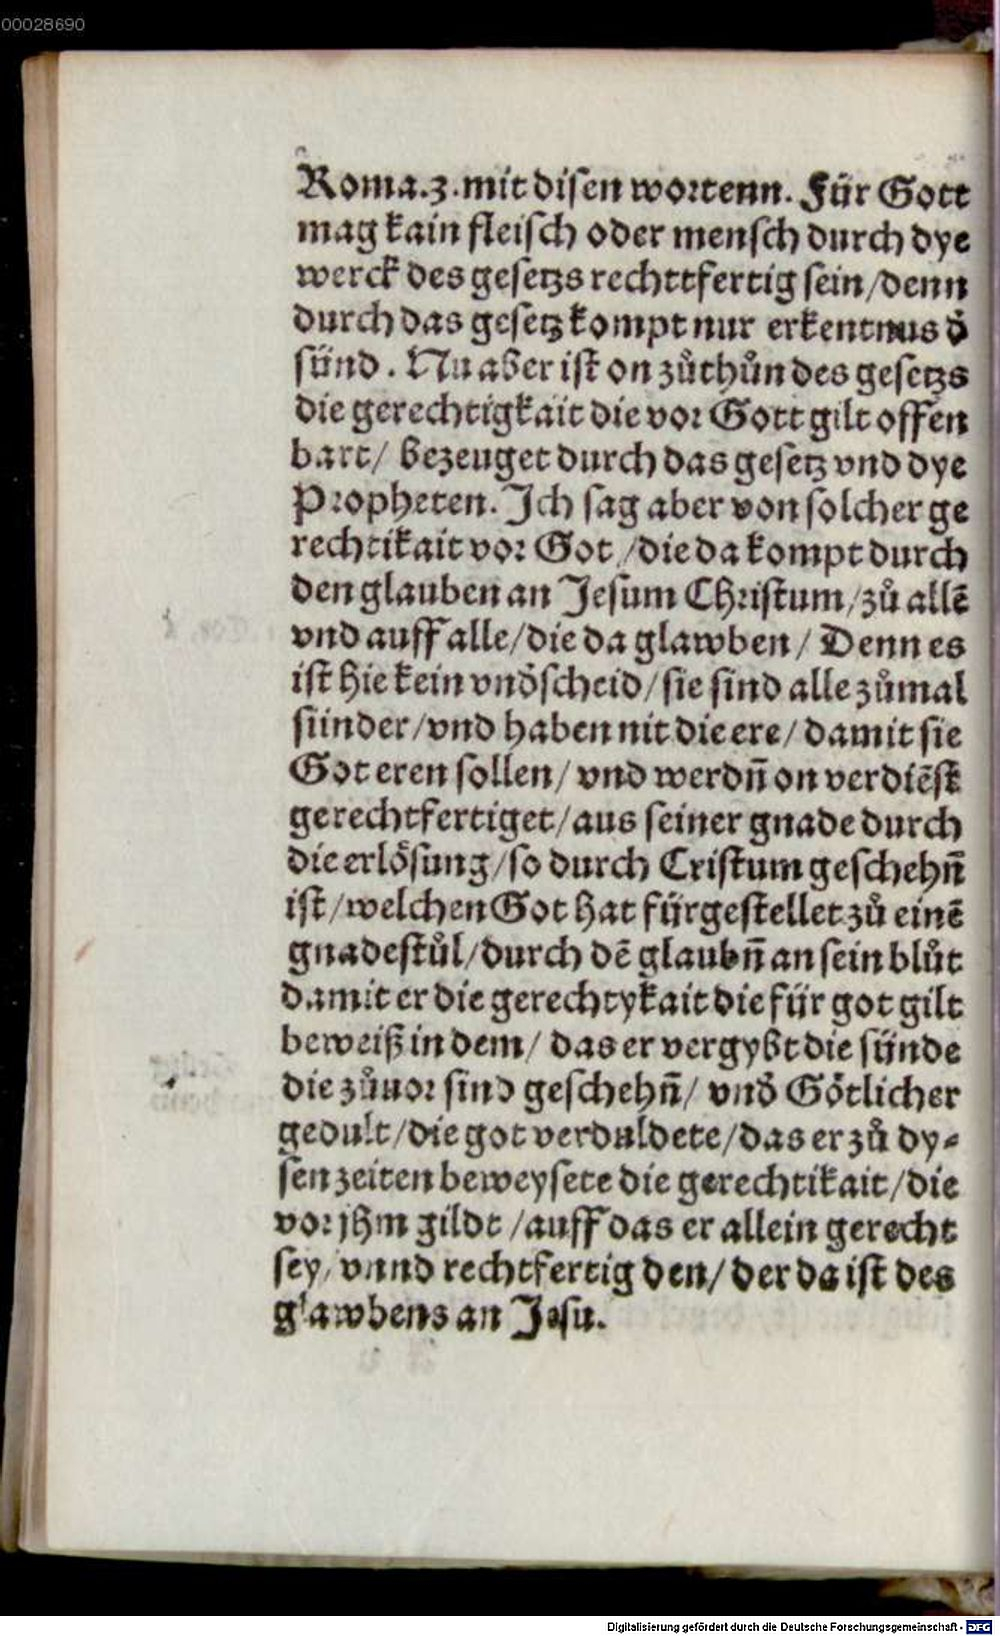 00028690
Roma.3.mit disen wortenn. Für Gott
mag kain fleisch oder mensch durch dye
werck des gesetzs rechttfertig sein/denn
durch das gesetz kompt nur erkentnus d̕
sünd. Nu aber ist on zůthůn des gesetzs
die gerechtigkait die vor Gott gilt offen
bart/ bezeuget durch das gesetz vnd dye
Propheten. Ich sag aber von solcher ge
rechtikait vor Got /die da kompt durch
den glauben an Jesum Christum/zů allē
vnd auff alle/die da glawben/ Denn es
ist hie kein vnd̕scheid/sie sind alle zůmal
sünder/vnd haben nit die ere/damit sie
Got eren sollen/ vnd werdn̄ on verdiēst
gerechtfertiget/aus seiner gnade durch
die erlösung/so durch Cristum geschehn̄
ist/welchen Got hat fürgestellet zů einē
gnadestůl/durch dē glaubn̄ an sein blůt
damit er die gerechtykait die für got gilt
beweiß in dem/ das er vergybt die sünde
die zůuor sind geschehn̄/ vnd̕ Götlicher
gedult/die got verduldete/das er zů dy⸗
sen zeiten beweysete die gerechtikait/die
vor jhm gildt /auff das er allein gerecht
sey/vnnd rechtfertig den/der da ist des
glawbens an Jesu.
Digitalisierung gefördert durch die Deutsche Forschungsgemeinschaft - DFG